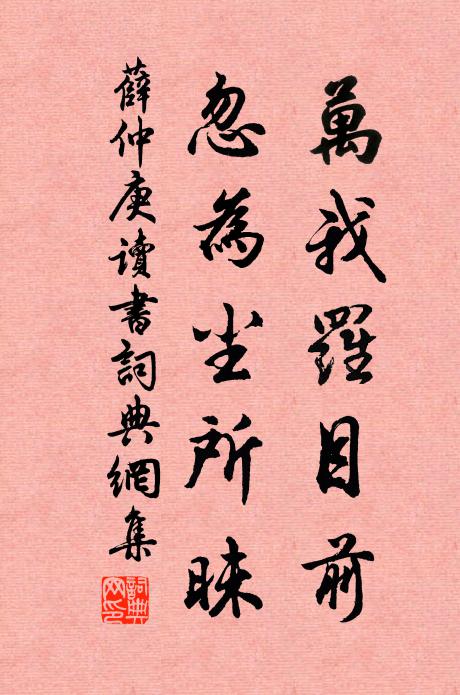 萬我羅目前
忽為尘所昧
薛仲庚讀書詞典網集
詞典
网印